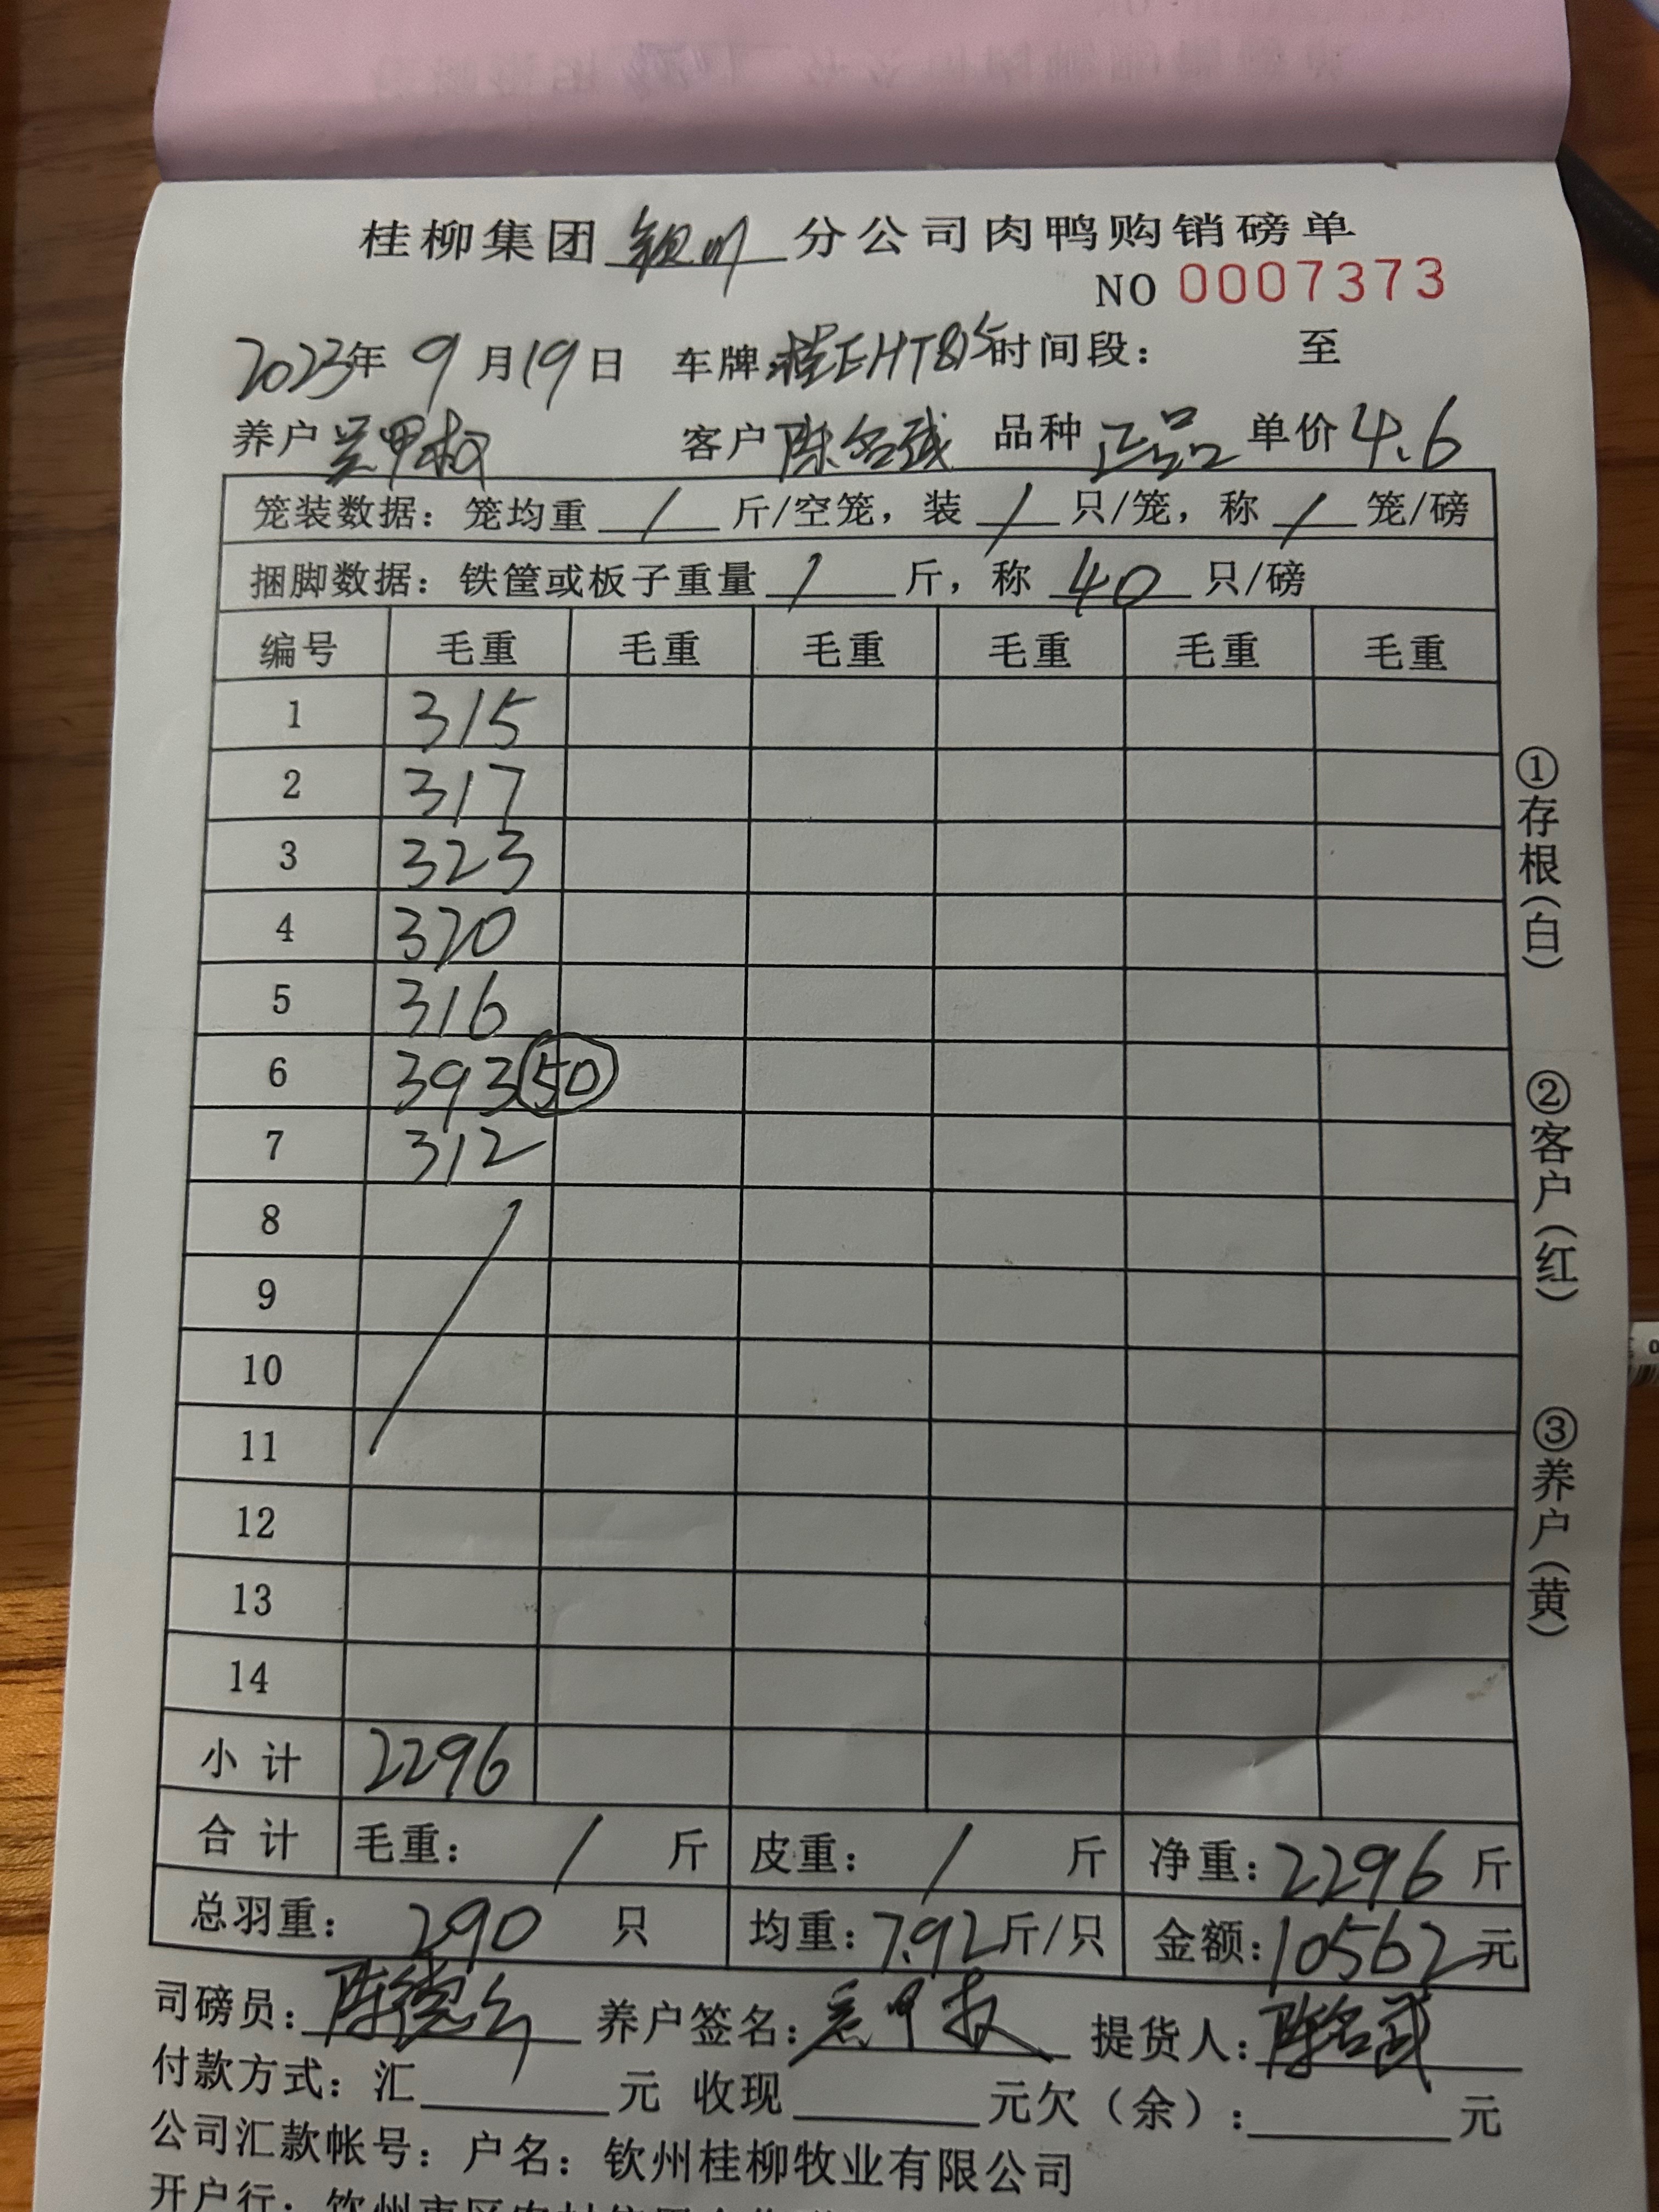 桂柳集团 钦州 分公司肉鸭购销磅单
NO 0007373
2023年 9月19日 车牌:桂EHT815 时间段: 至
养户 客户 陈名斌 品种 正品 单价 4.6
笼装数据: 笼均重 / 斤/空笼, 装 / 只/笼, 称 / 笼/磅
捆脚数据: 铁筐或板子重量 / 斤, 称 40 只/磅
编号 毛重 毛重 毛重 毛重 毛重 毛重
1 315
2 317
3 323
4 320
5 316
6 393 50
7 312
8
9
10
11
12
13
14
小计 2296
合计 毛重: / 斤 皮重: / 斤 净重: 2296 斤
总羽重: 290 只 均重: 7.92 斤/只 金额: 10562 元
司磅员: 养户签名: 提货人:
付款方式: 汇 元 收现 元欠(余): 元
公司汇款帐号: 户名: 钦州桂柳牧业有限公司
开户行:
①存根(白)
②客户(红)
③养户(黄)